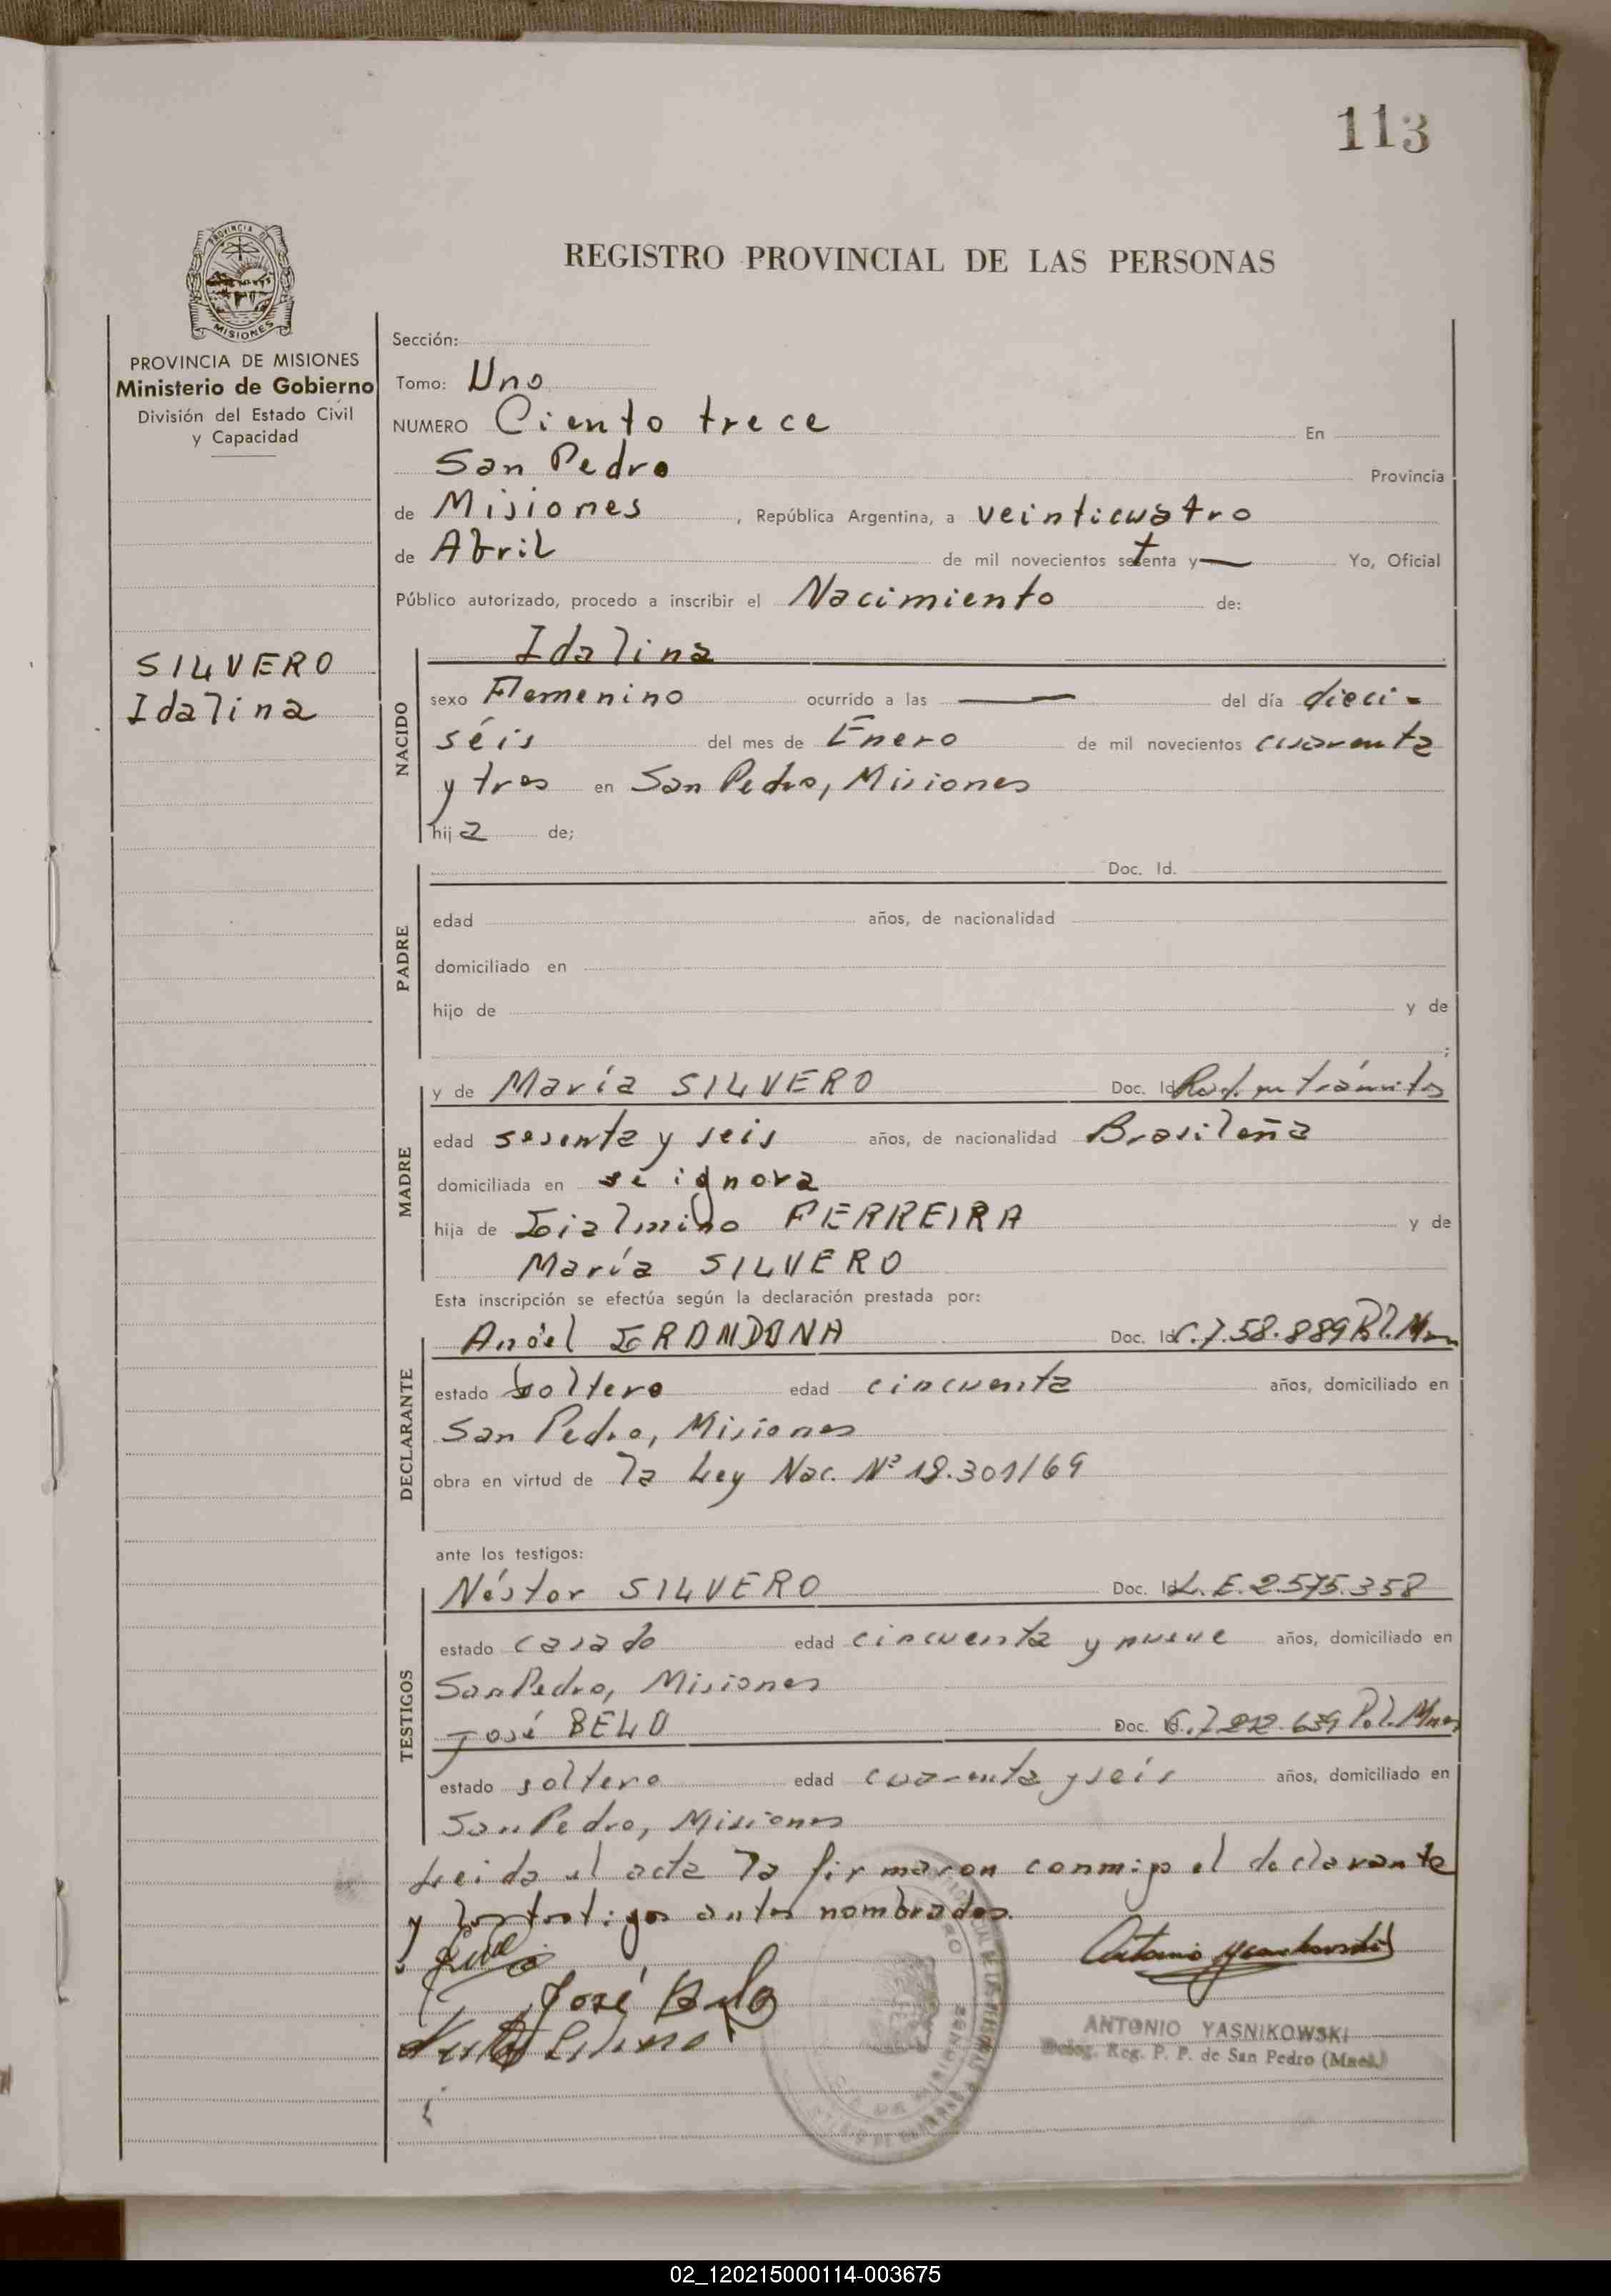 113
REGISTRO PROVINCIAL DE LAS PERSONAS
PROVINCIA DE
MISIONES
PROVINCIA DE MISIONES
Ministerio de Gobierno
División del Estado Civil
y Capacidad
SILVERO
Idalina
Sección:
Tomo: Uno
NUMERO Ciento trece En
San Pedro Provincia
de Misiones, República Argentina, a veinticuatro
de Abril de mil novecientos setenta y — Yo, Oficial
Público autorizado, procedo a inscribir el Nacimiento de:
Idalina
NACIDO
sexo Femenino ocurrido a las — del día dieci-
séis del mes de Enero de mil novecientos cuarenta
y tres en San Pedro, Misiones
hija de;
PADRE
Doc. Id.
edad años, de nacionalidad
domiciliado en
hijo de y de
;
MADRE
y de María SILVERO Doc. Id. trámites
edad sesenta y seis años, de nacionalidad Brasileña
domiciliada en se ignora
hija de FERREIRA y de
María SILVERO
Esta inscripción se efectúa según la declaración prestada por:
DECLARANTE
Doc. Id. 7.58.889 Pol. Mnes
estado soltero edad cincuenta años, domiciliado en
San Pedro, Misiones
obra en virtud de la Ley Nac. Nº 18.301/69
ante los testigos:
TESTIGOS
Néstor SILVERO Doc. Id L.E. 2.575.358
estado casado edad cincuenta y nueve años, domiciliado en
San Pedro, Misiones
José BELO Doc. Id. Pol. Mnes
estado soltero edad cuarenta y seis años, domiciliado en
San Pedro, Misiones
Leida el acta la firmaron conmigo el declarante
y los testigos antes nombrados.
Antonio Yasnikowski
José Belo
ANTONIO YASNIKOWSKI
Deleg. Reg. P. P. de San Pedro (Mnes.)
02_120215000114-003675